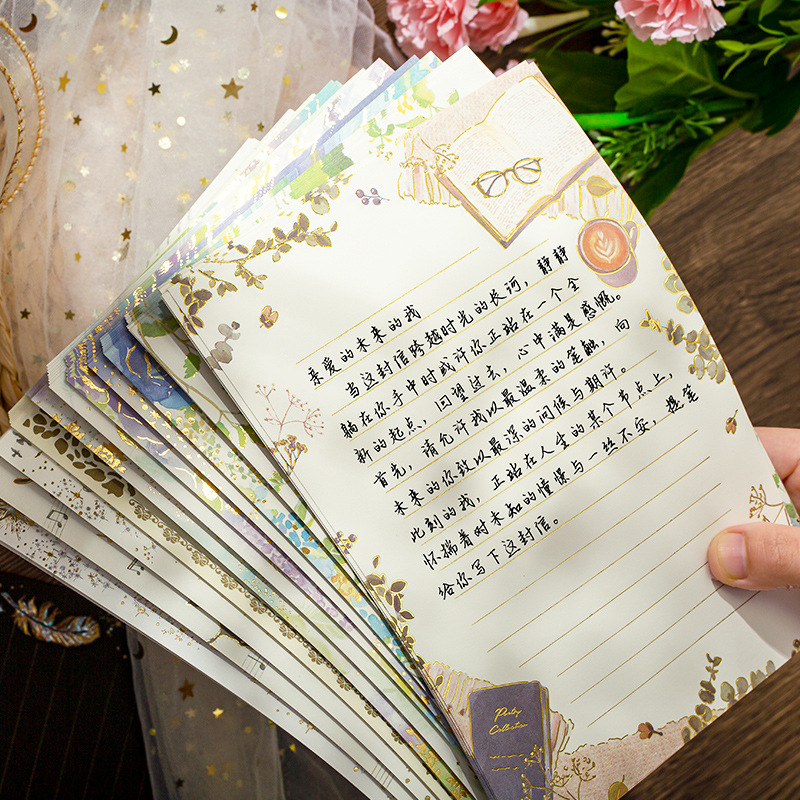 亲爱的未来的我
当这封信跨越时光的长河，静静
躺在你手中时或许你正站在一个全
新的起点，回望过去，心中满是感慨。
首先，请允许我以最温柔的笔触，向
未来的你致以最深的问候与期许。
此刻的我，正站在人生的某个节点上，
怀揣着对未知的憧憬与一丝不安，提笔
给你写下这封信。
Poetry
Collection